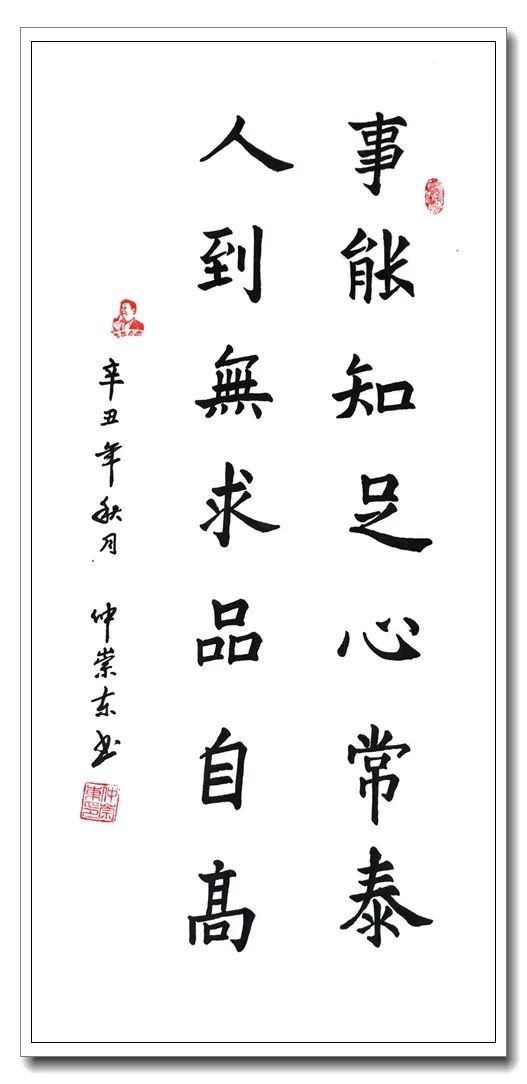 事能知足心常泰
人到無求品自高
辛丑年秋月
仲崇东书
仲崇東印